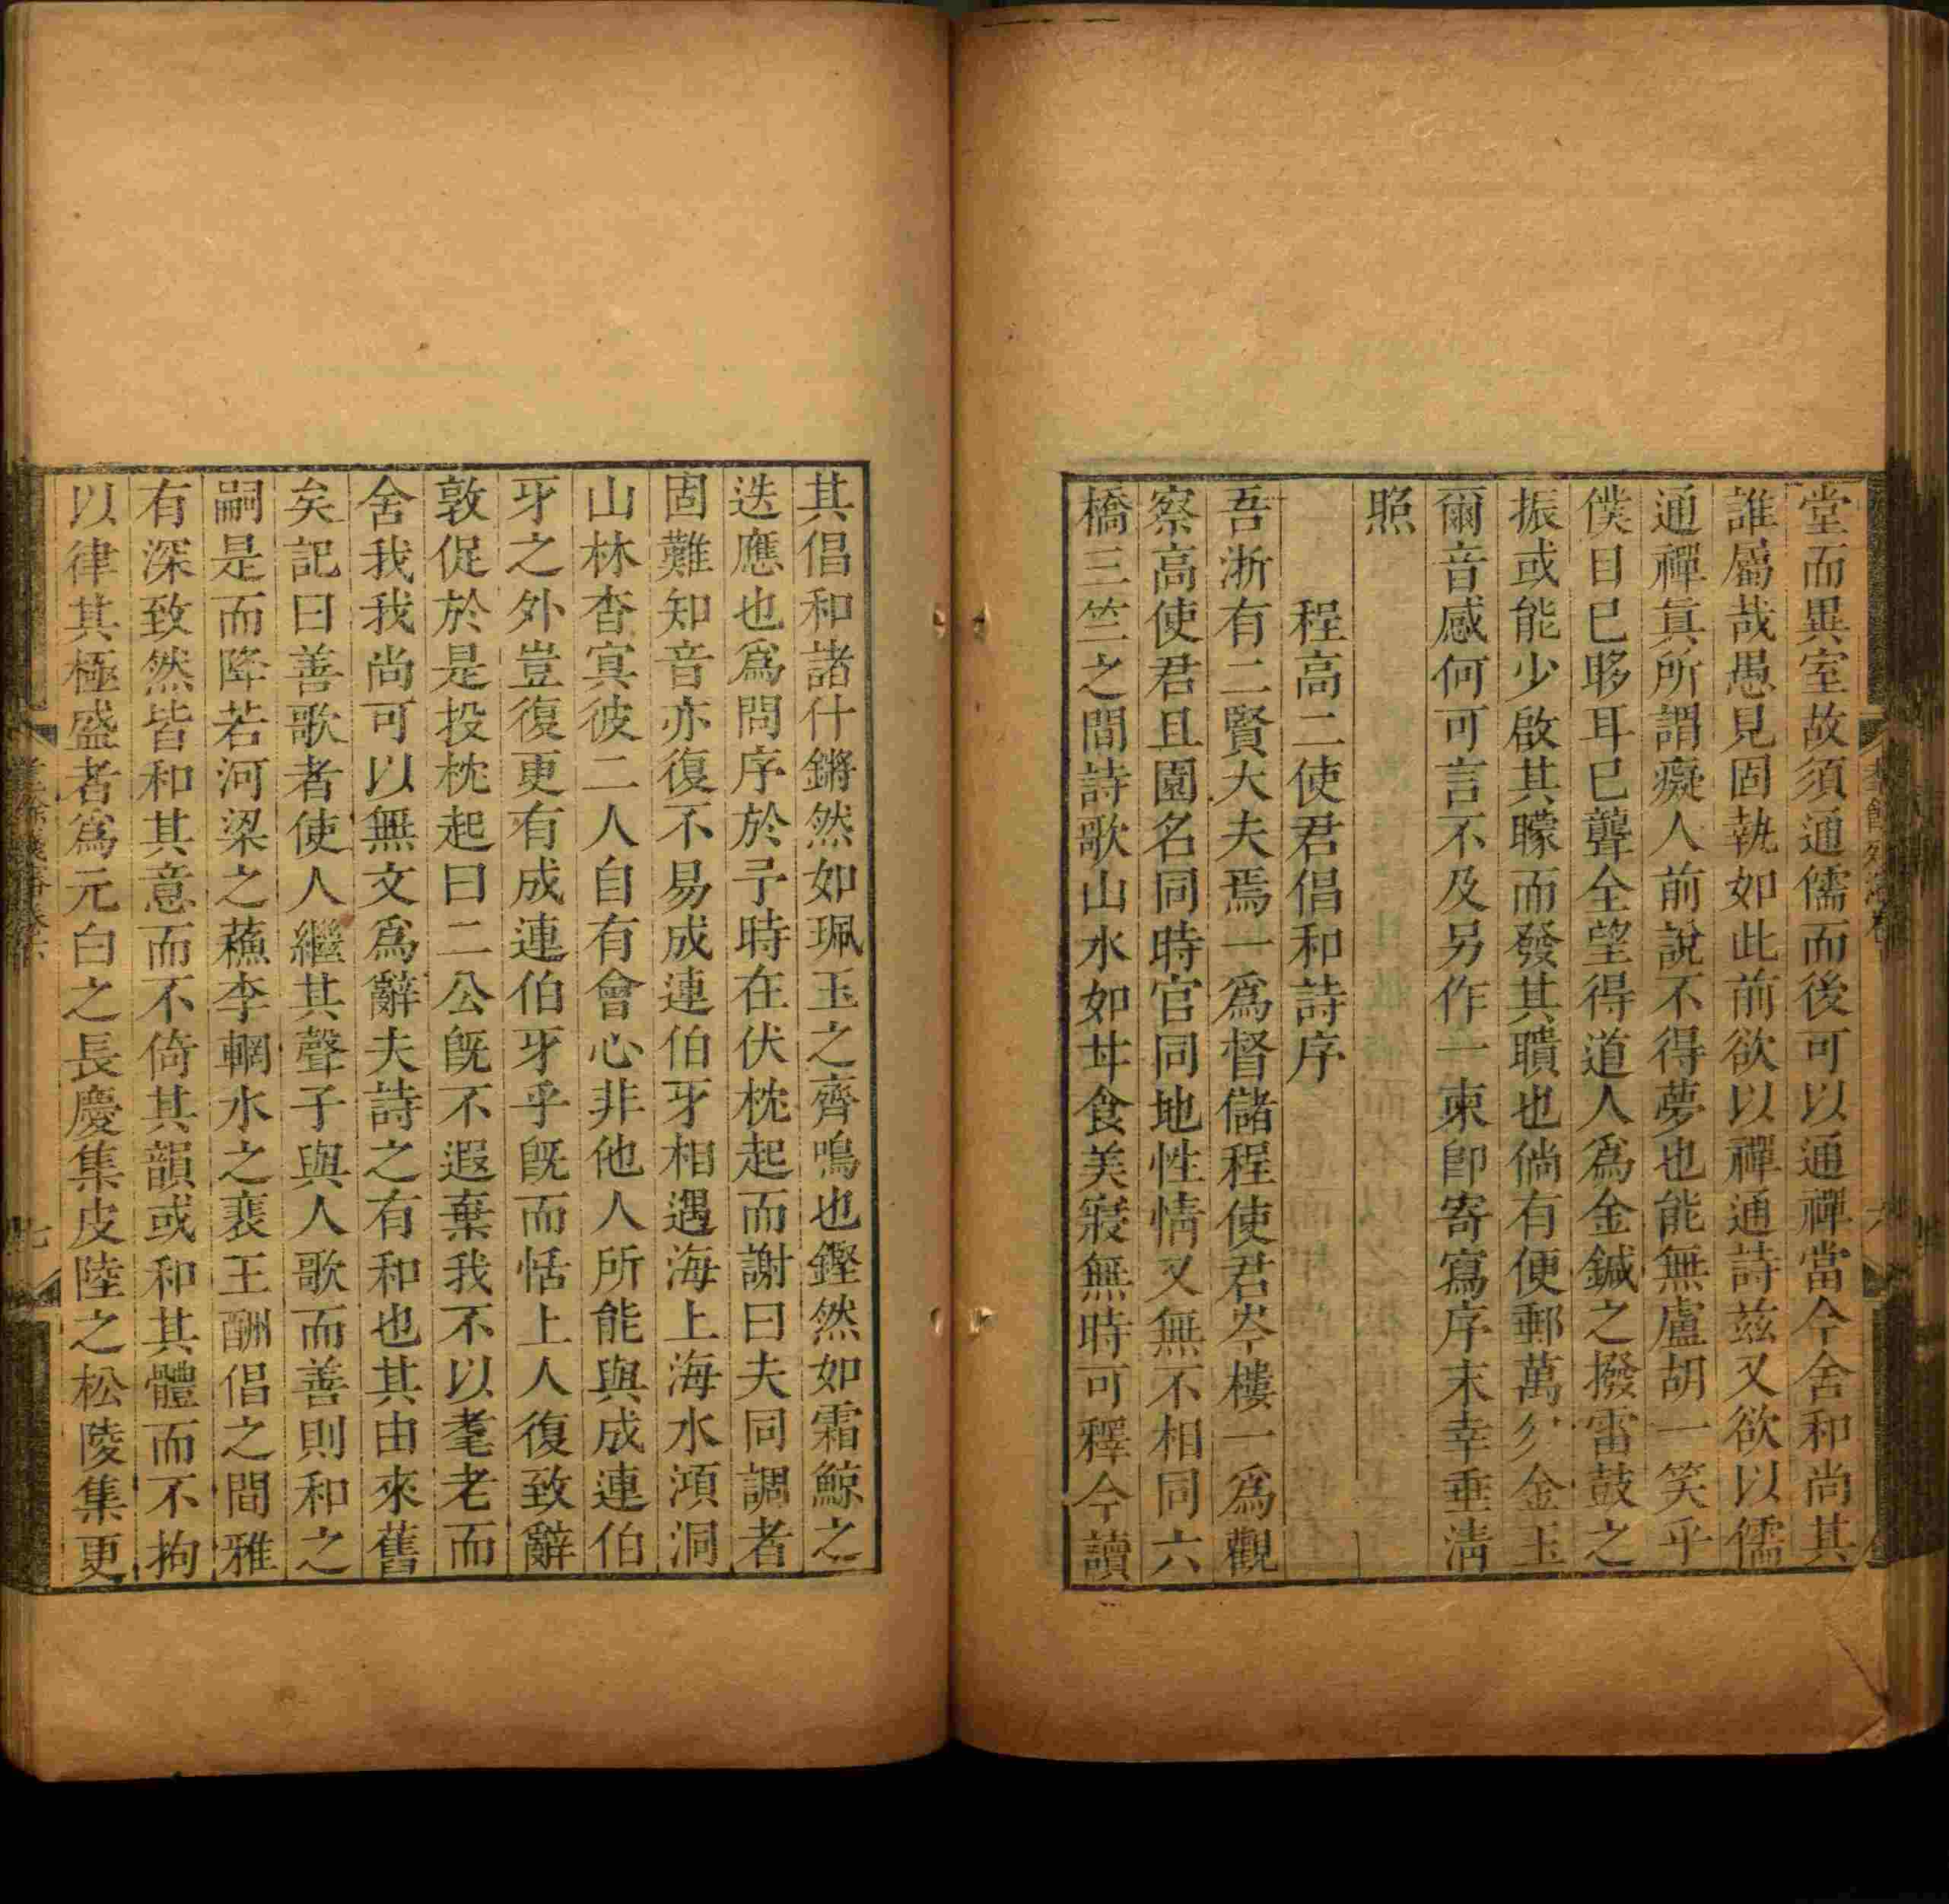 堂而異室故須通儒而後可以通禪當今舍和尚其
誰屬哉愚見固執如此前欲以禪通詩茲又欲以儒
通禪真所謂癡人前說不得夢也能無盧胡一笑乎
僕目已眵耳已聾全望得道人為金鍼之撥雷鼓之
振或能少啟其矇而發其聵也倘有便郵萬勿金玉
爾音感何可言不及另作一柬卽寄寫序末幸垂淸
照
程高二使君倡和詩序
吾浙有二賢大夫焉一為督儲程使君岑樓一為觀
察高使君且園名同時官同地性情又無不相同六
橋三竺之間詩歌山水如甘食美寢無時可釋今讀
其倡和諸什鏘然如珮玉之齊鳴也鏗然如霜鯨之
迭應也爲問序於予時在伏枕起而謝曰夫同調者
固難知音亦復不易成連伯牙相遇海上海水澒洞
山林杳冥彼二人自有會心非他人所能與成連伯
牙之外豈復更有成連伯牙乎旣而恬上人復致辭
敦促於是投枕起曰二公旣不遐棄我不以耄老而
舍我我尚可以無文爲辭夫詩之有和也其由來舊
矣記曰善歌者使人繼其聲子與人歌而善則和之
嗣是而降若河梁之蘇李輞水之裴王酬倡之間雅
有深致然皆和其意而不倚其韻或和其體而不拘
以律其極盛者爲元白之長慶集皮陸之松陵集更
七